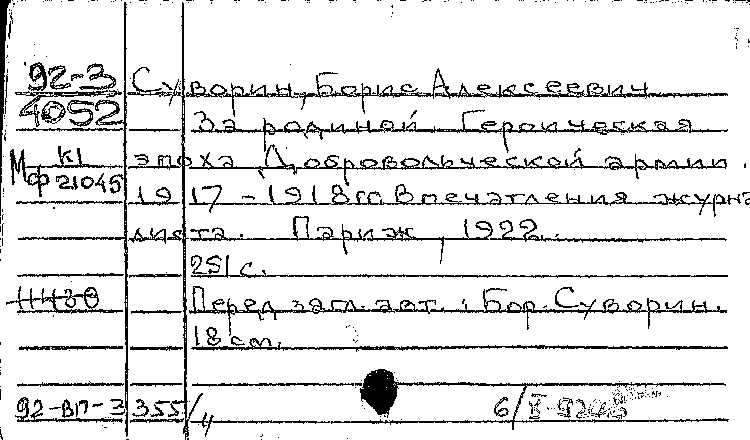 92-3 Суворин, Борис Алексеевич
4052 За родиной. Героическая
М К1 эпоха Добровольческой армии.
ф 21045 1917-1918гг Впечатления журна
листа. Париж, 1922.
251 с.
Перед загл. авт.: Бор. Суворин.
18 см.
92-ВП-3 355/4 6/